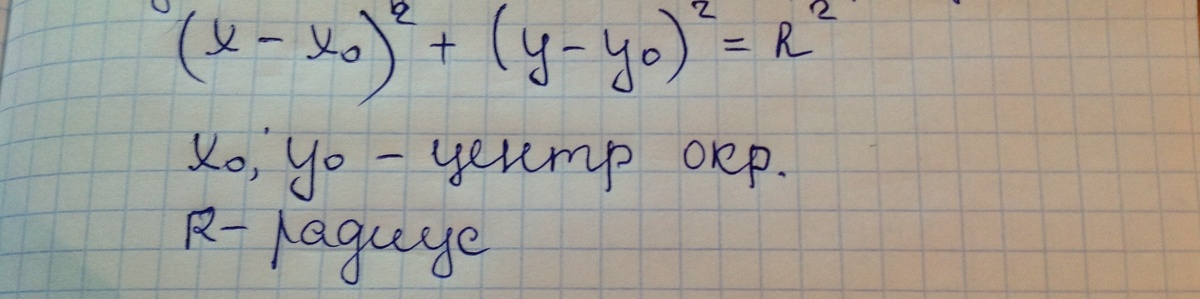 (x - x₀)² + (y - y₀)² = R²
x₀; y₀ - центр окр.
R - радиус